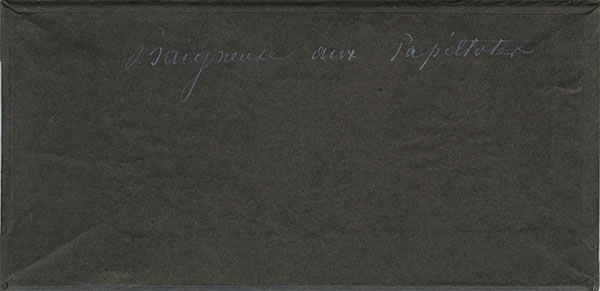 Baigneuse aux Papillotes